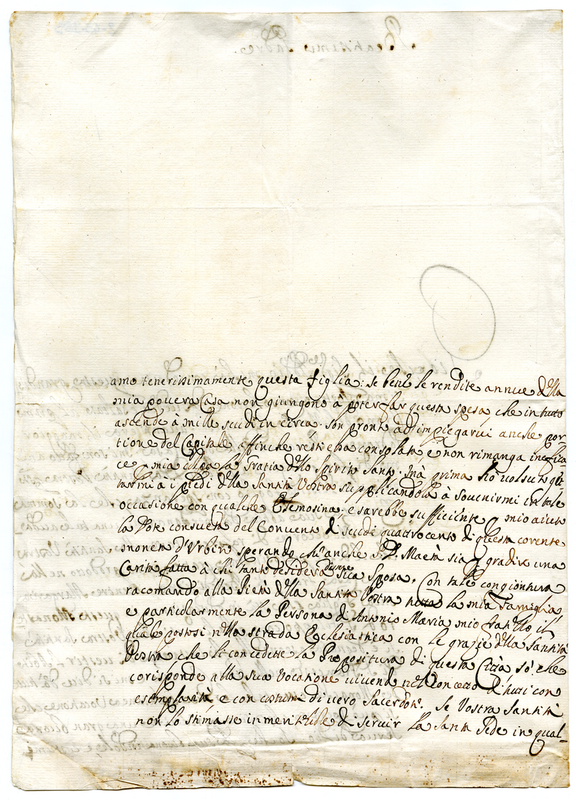 amo tenerissimamente questa figlia: se bene le rendite annue della
mia povera Casa non giungono à poter far questa spesa che in tutto
ascende à mille scudi in circa. Son pronto ad impiegarvi anche por-
tione del Capitale affinche resti essa consolata e non rimanga ineffica-
ce in la gratia dello Spirito Santo. Mà prima hò voluto get-
tarmi a i piedi della Santità Vostra supplicandola à sovenirmi in tale
occasione con qualche Elemosina: e sarebbe sufficiente p mio aiuto
la Dote consueta del Convento di scudi quattrocento di questa corrente
moneta d'Urbino sperando ch'anche S. D. Maestà sia p gradire una
Carità fatta à chi tanto desidera divenire sua Sposa. Con tale congiontura
racomando alla Pietà della Santità Vostra tutta la mia Famiglia
e particolarmente la Persona di Antonio Maria mio fratello il
quale postosi nella strada Ecclesiastica con le gratie della Santità
Vostra che li concedette la Prepositura di questa Città sò che
corisponde alla sua Vocatione vivendo nel Concetto di tutti con
esemplarità e con costumi di vero Sacerdote. Se Vostra Santità
non lo stimasse immeritevole di servir la Santa Sede in qual-